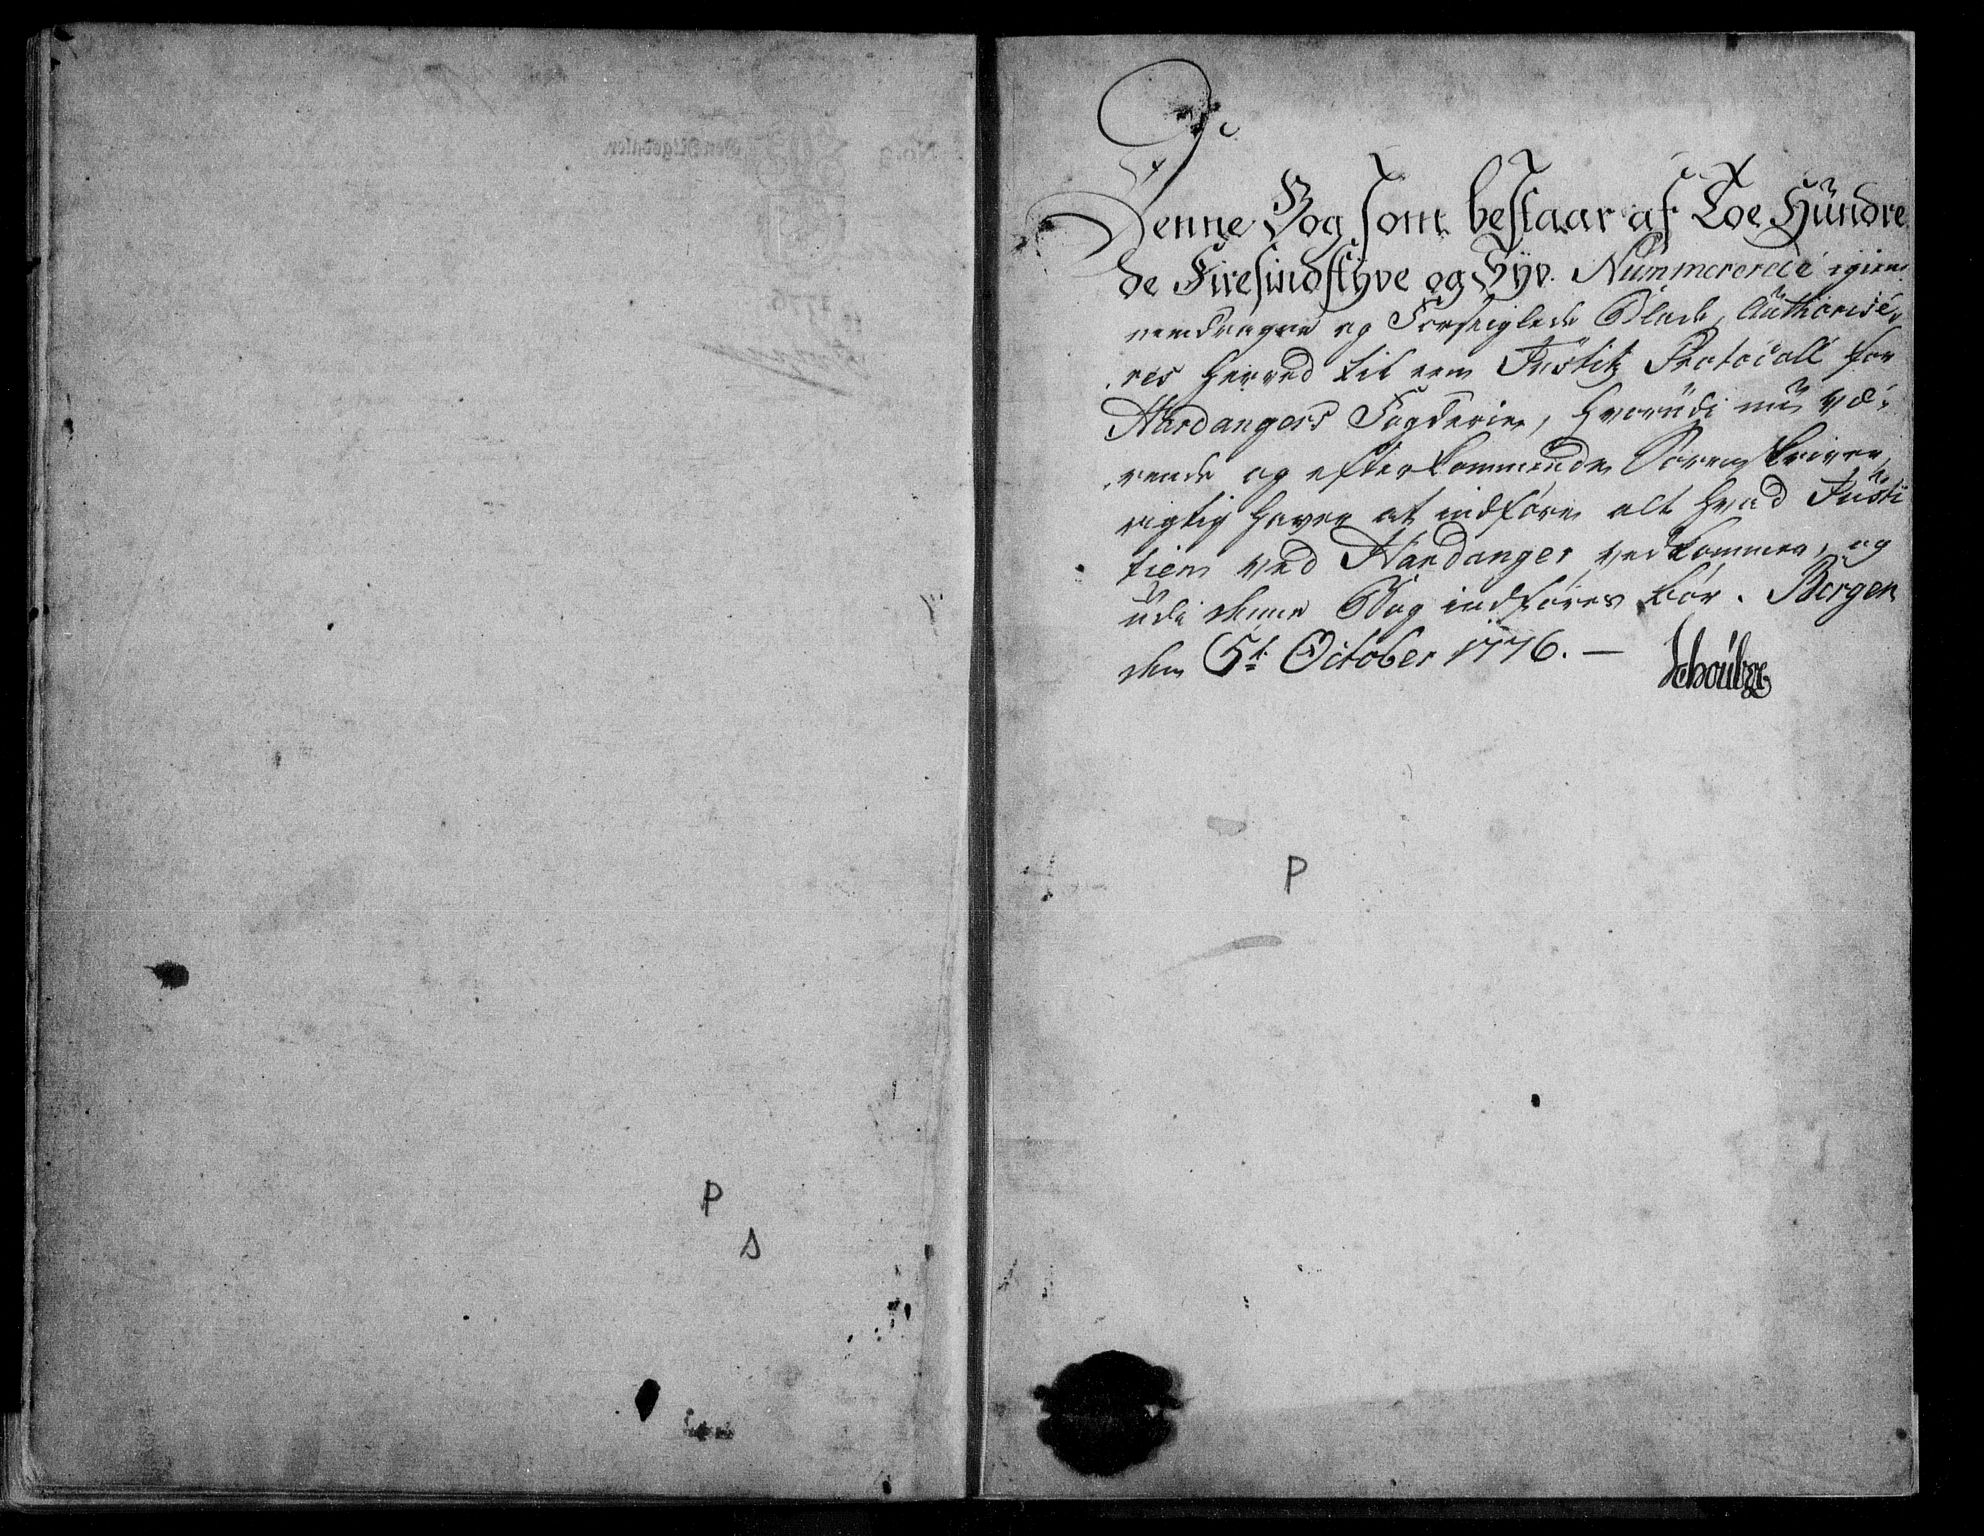 Denne Bog som bestaar af Toe Hundre
de Firesindstyve og Syv Nummererede igien
nemdragne og Forseiglede Blade, Authorisé,
res herved til een Justitz Protocoll for
Hardangers Fogderie, hvorudi nu væ,
rende og efterkommende Sorenskriver
rigtig haver at indføre alt hvad Justi
tien ved Hardanger vedkommer, og
udi denne Bog indføres bør. Bergen
den 5t October 1776. —
Schouboe
P
P
s
No. 3
1776